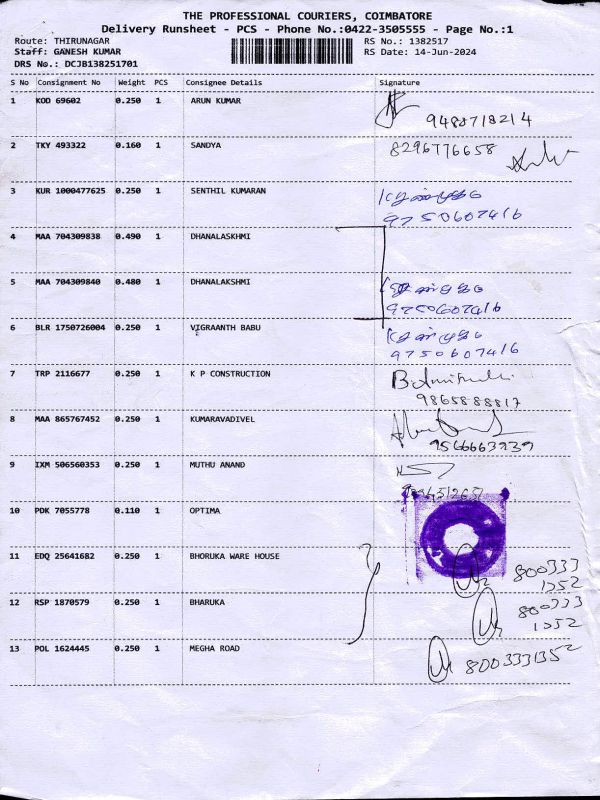 THE PROFESSIONAL COURIERS, COIMBATORE
Delivery Runsheet - PCS - Phone No.:0422-3505555 - Page No.:1
Route: THIRUNAGAR RS No.: 1382517
Staff: GANESH KUMAR RS Date: 14-Jun-2024
DRS No.: DCJB138251701
S No Consignment No Weight PCS Consignee Details Signature
1 KOD 69602 0.250 1 ARUN KUMAR
9480718214
2 TKY 493322 0.160 1 SANDYA 8296776658
3 KUR 1000477625 0.250 1 SENTHIL KUMARAN
9750607416
4 MAA 704309838 0.490 1 DHANALASKHMI
5 MAA 704309840 0.480 1 DHANALAKSHMI
9750607416
6 BLR 1750726004 0.250 1 VIGRAANTH BABU
9750607416
7 TRP 2116677 0.250 1 K P CONSTRUCTION
9865888817
8 MAA 865767452 0.250 1 KUMARAVADIVEL
9566663939
9 IXM 506560353 0.250 1 MUTHU ANAND
10 PDK 7055778 0.110 1 OPTIMA
11 EDQ 25641682 0.250 1 BHORUKA WARE HOUSE
800333
1352
12 RSP 1870579 0.250 1 BHARUKA 800333
1352
13 POL 1624445 0.250 1 MEGHA ROAD 8003331352